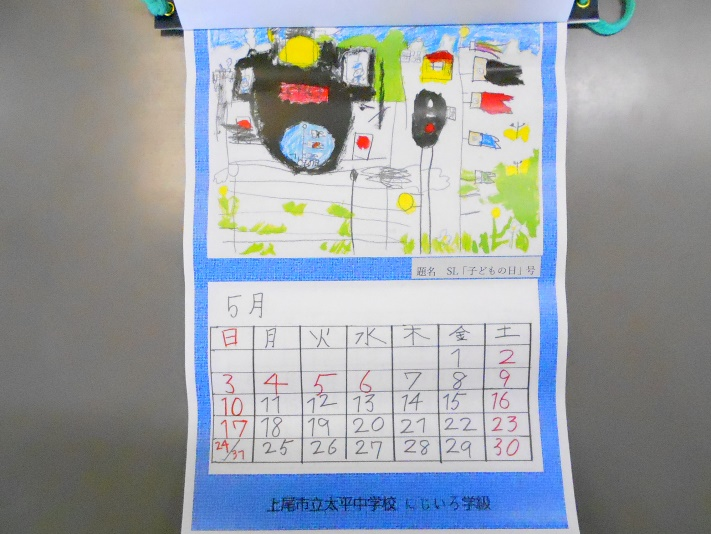 題名 SL「子どもの日」号
5月
日 月 火 水 木 金 土
1 2
3 4 5 6 7 8 9
10 11 12 13 14 15 16
17 18 19 20 21 22 23
24/31 25 26 27 28 29 30
上尾市立太平中学校 にじいろ学級